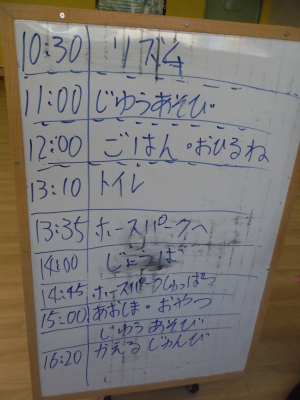 10:30 リズム
11:00 じゆうあそび
12:00 ごはん・おひるね
13:10 トイレ
13:35 ホースパークへ
14:00 じょうば
14:45 ホースパークしゅっぱつ
15:00 あおしま・おやつ
じゆうあそび
16:20 かえるじゅんび